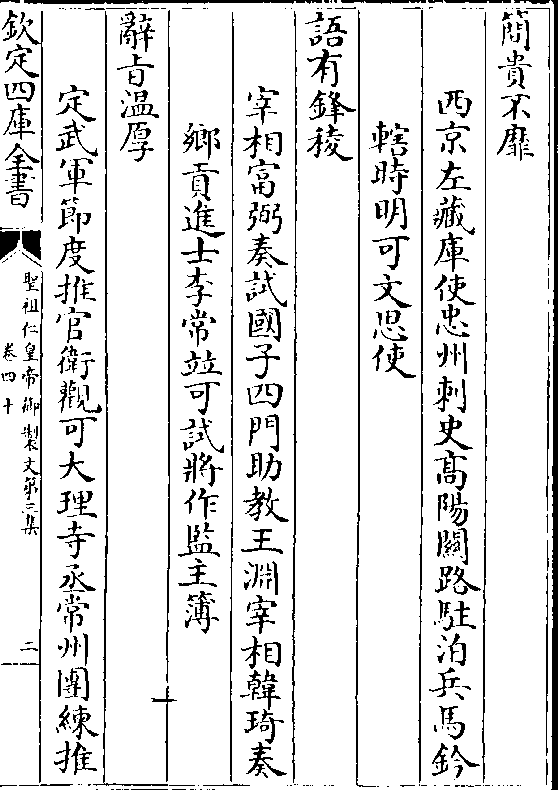 簡貴不靡
西京左藏庫使忠州刺史髙陽關路駐泊兵馬鈐
轄時明可文思使
語有鋒稜
宰相富弼奏試國子四門助教王淵宰相韓琦奏
鄉貢進士李常竝可試將作監主簿
辭㫖溫厚
定武軍節度推官衛觀可大理寺丞常州團練推
欽定四庫全書
聖祖仁皇帝御製文第三集
卷四十
二